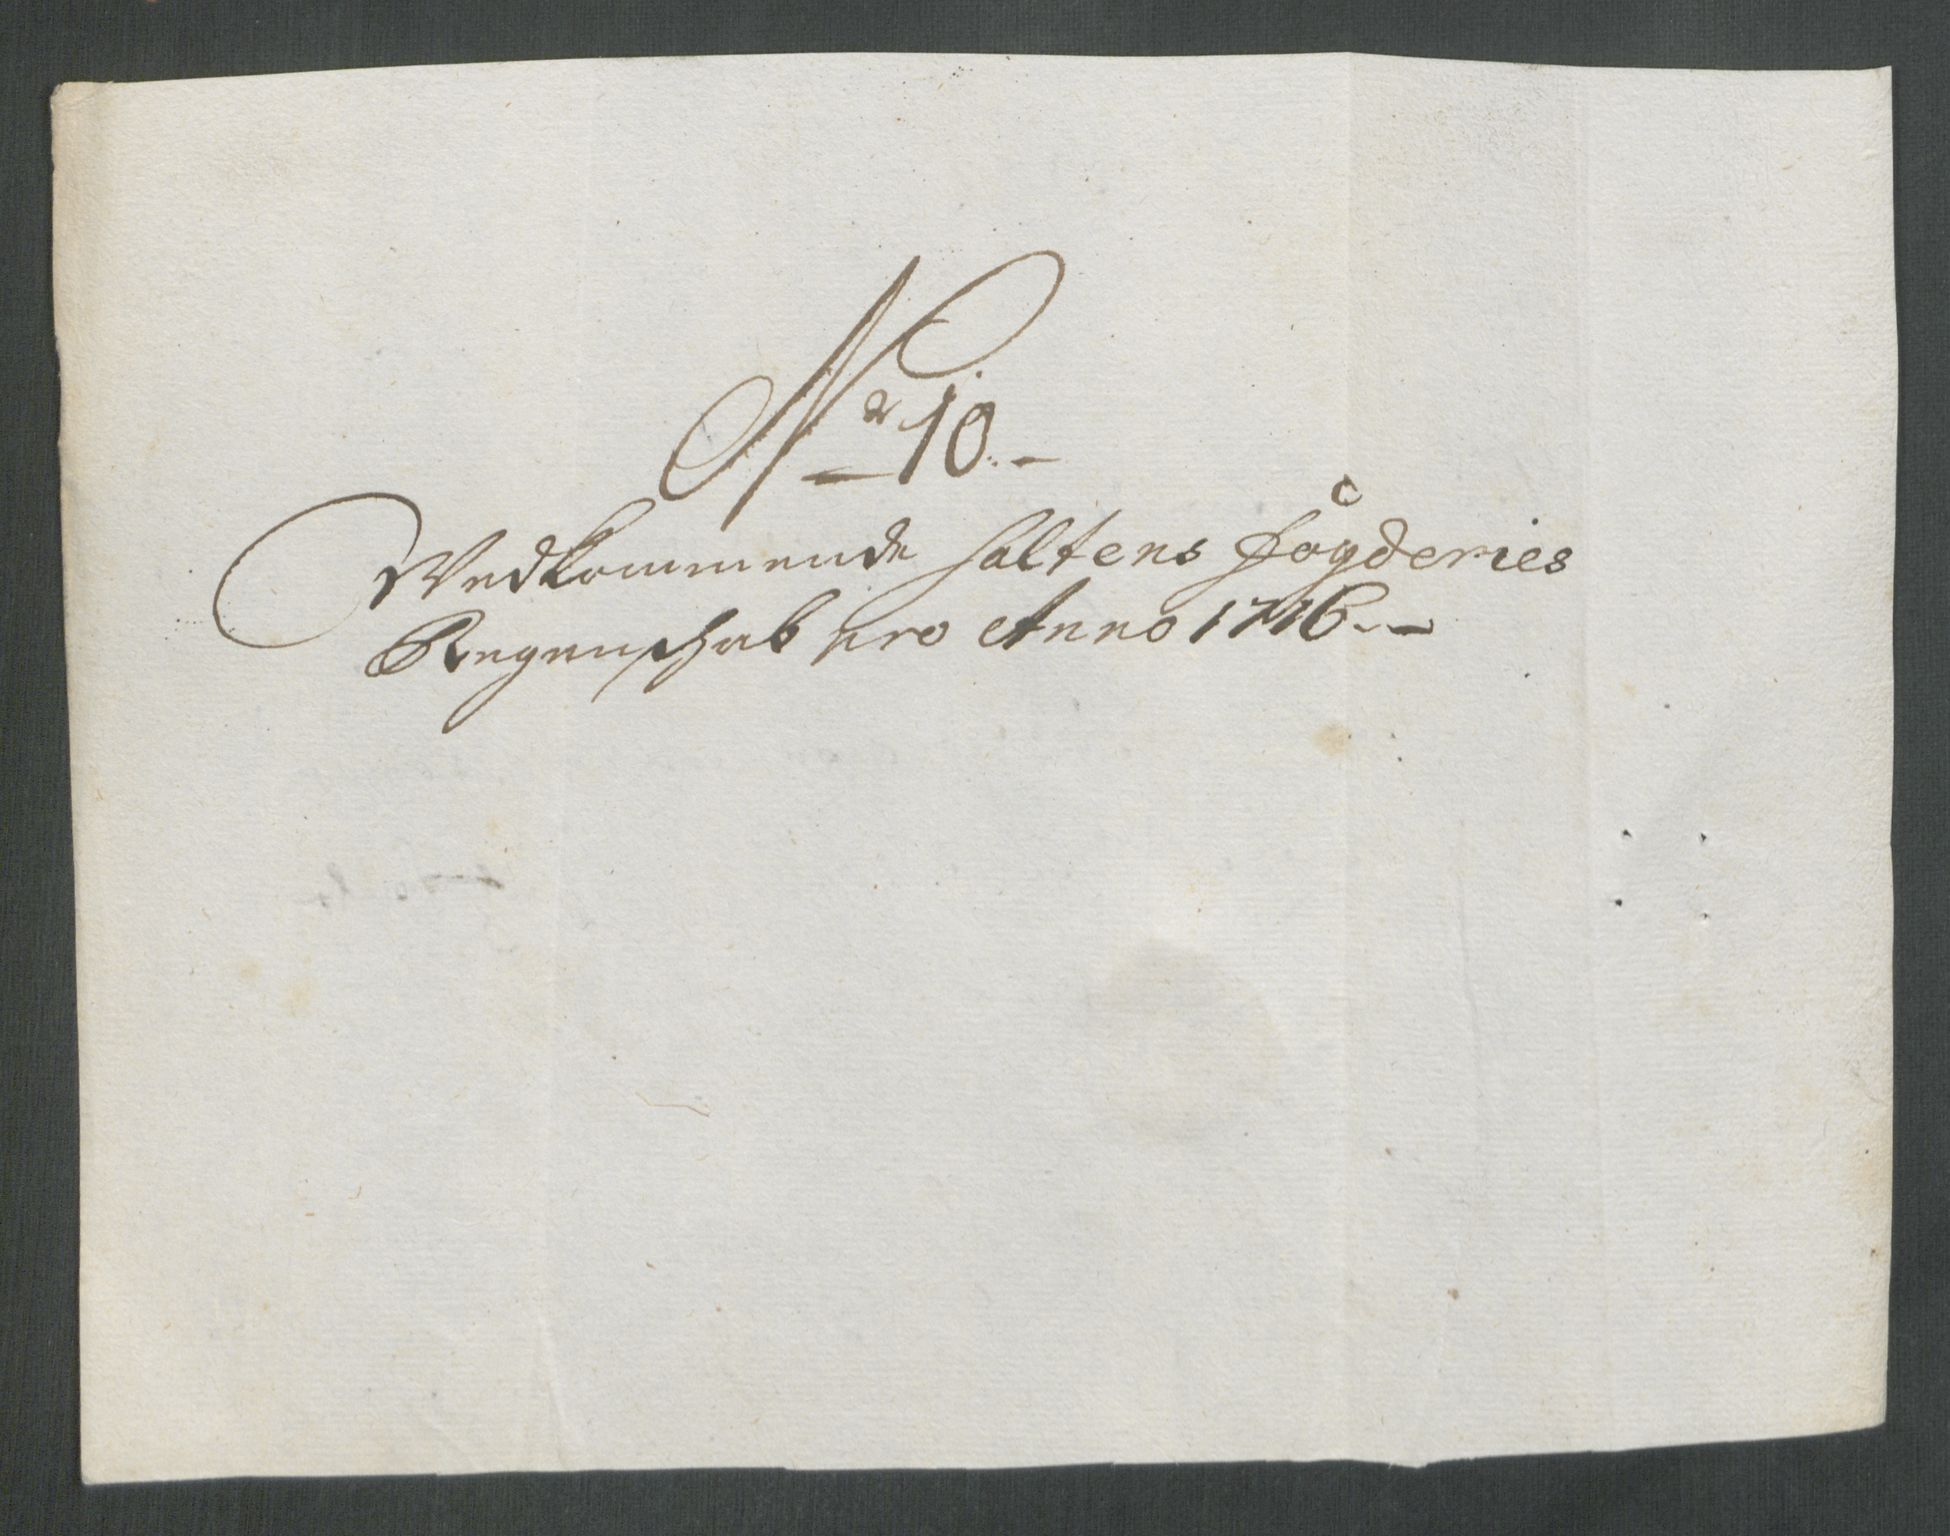 No 10.-
Wedkommende Saltens Fogderies
Regenschab pro Anno 1716--